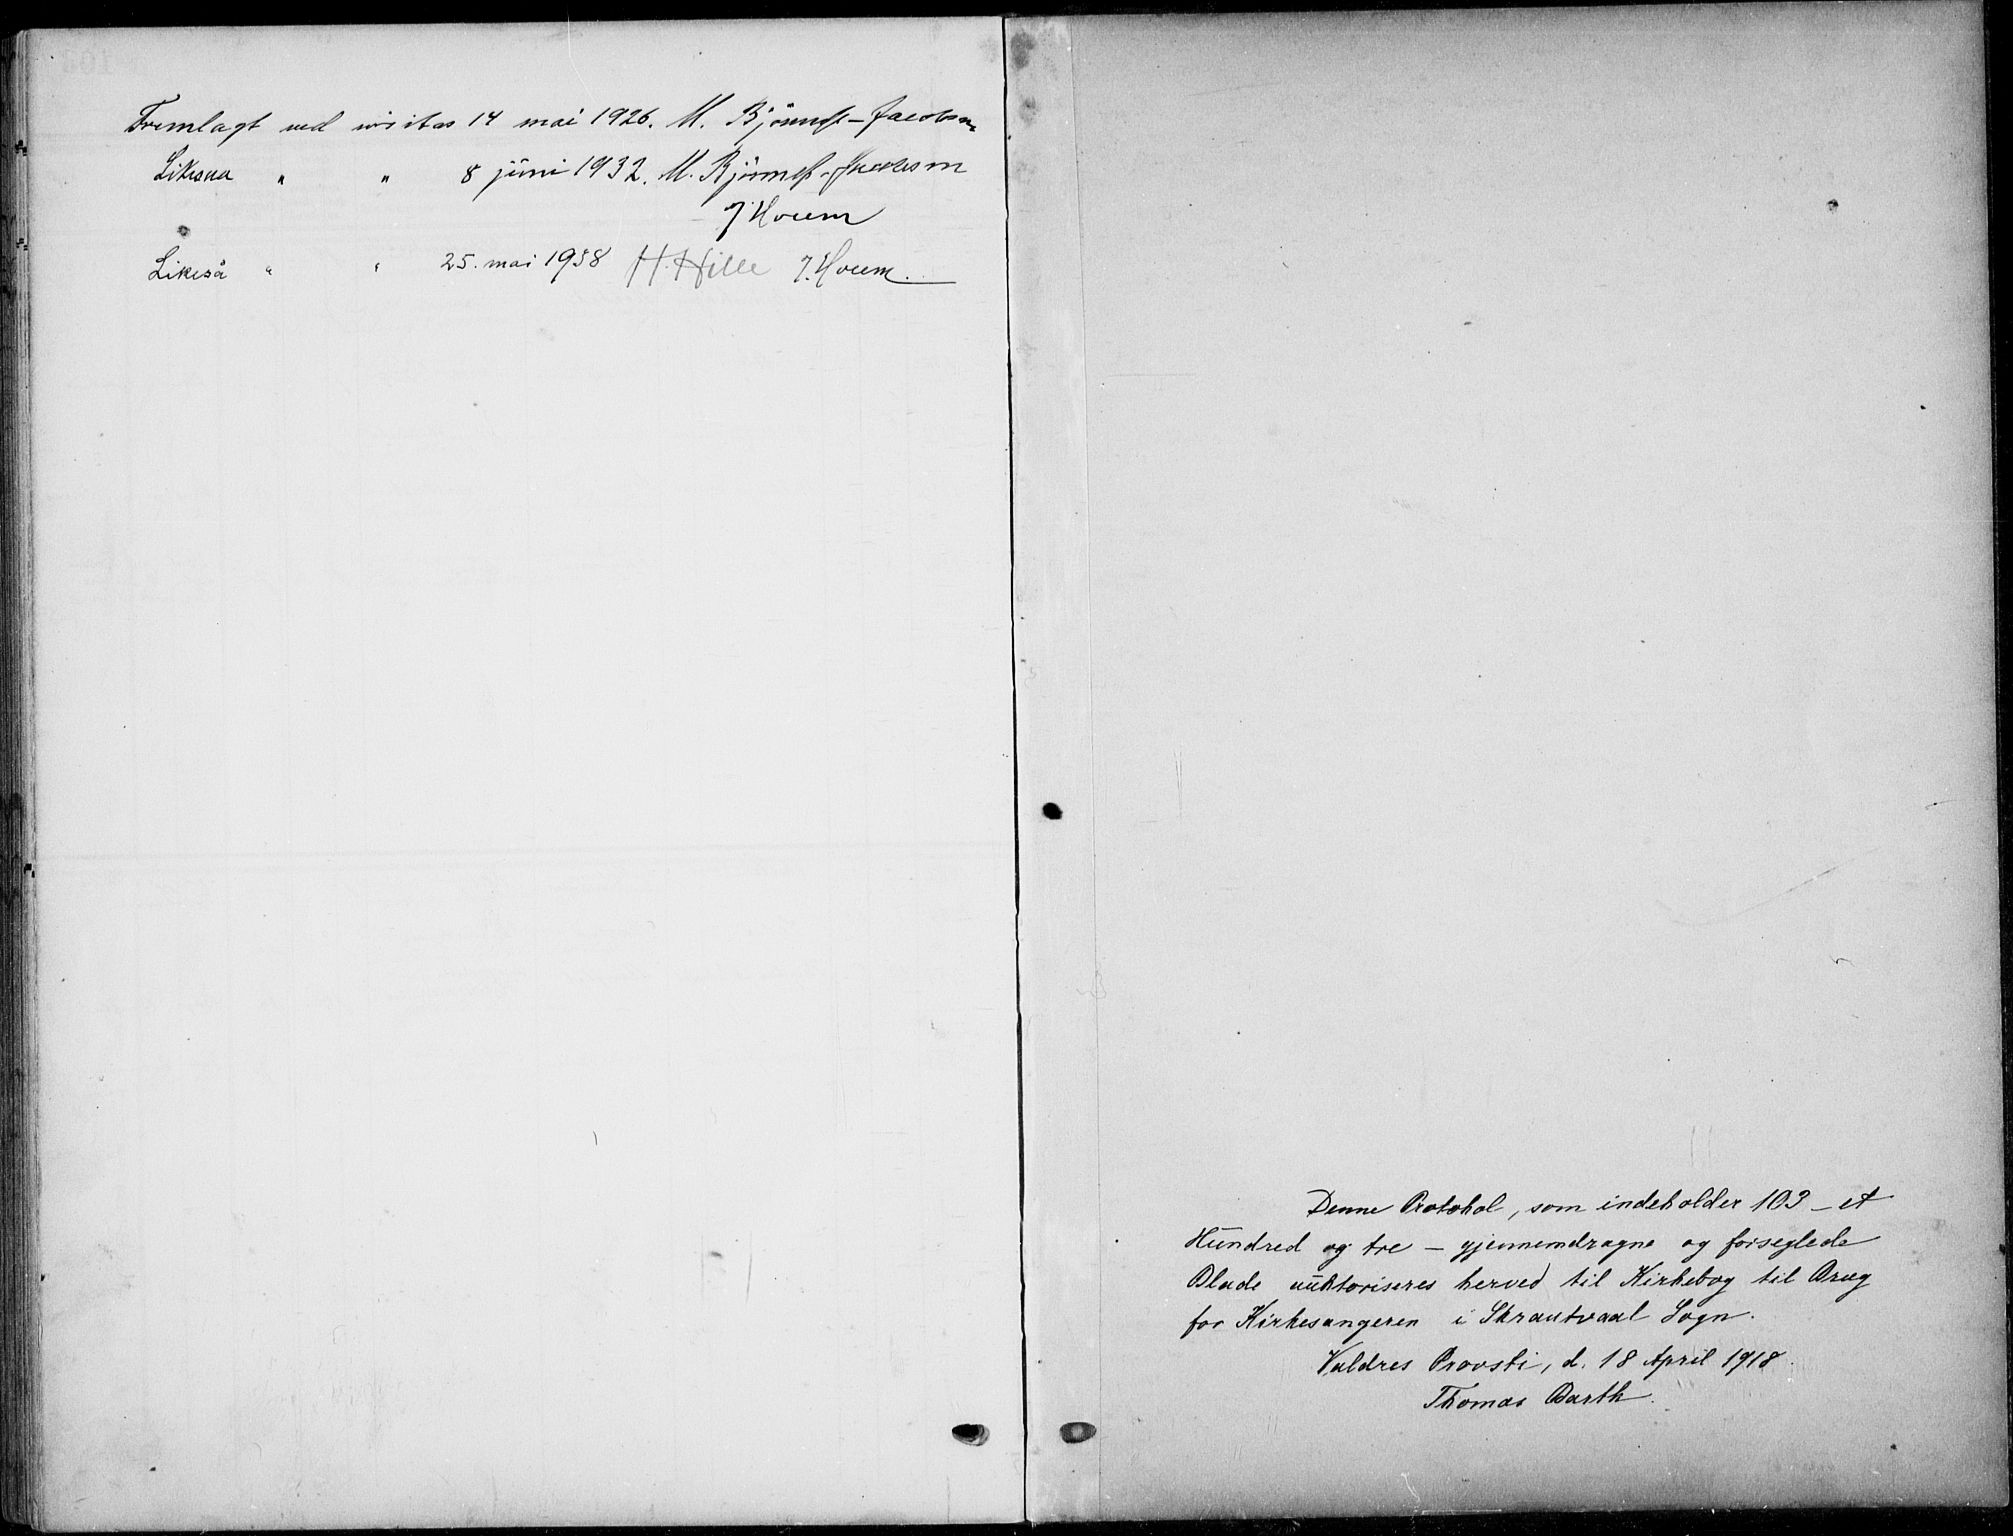 Fremlagt ved visitas 14 mai 1926. M. Bjønness-Jacobsen
Likesaa " " 8 juni 1932. M. Bjønness-Jacobsen
J. Hovem
Likeså " " 25. mai 1938 H. Hille J. Hovem.
Denne Protokol, som indeholder 103 - et
Hundred og tre - gjennemdragne og forseglede
Blade auktoriseres herved til Kirkebog til Brug
for Kirkesangeren i Skrautvaal Sogn.
Valdres Provsti, d. 18 April 1918.
Thomas Barth.